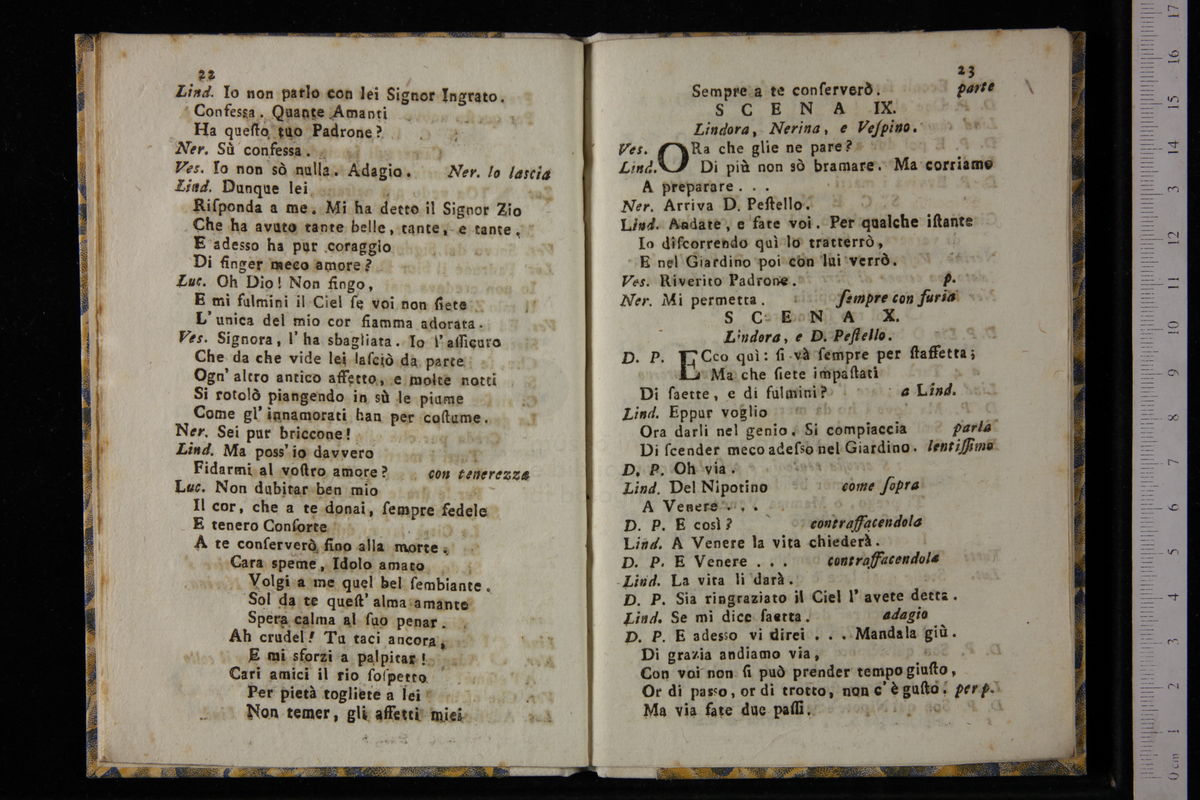 22
Lind. Io non parlo con lei Signor Ingrato.
Confessa. Quante Amanti
Ha queſto tuo Padrone?
Ner. Sù confessa.
Ves. Io non sò nulla. Adagio. Ner. lo lascia
Lind. Dunque lei
Riſponda a me. Mi ha detto il Signor Zio
Che ha avuto tante belle, tante, e tante,
E adesso ha pur coraggio
Di finger meco amore?
Luc. Oh Dio! Non fingo,
E mi fulmini il Ciel ſe voi non ſiete
L'unica del mio cor fiamma adorata.
Ves. Signora, l'ha sbagliata. Io l'aſſicuro
Che da che vide lei laſciò da parte
Ogn'altro antico affetto, e molte notti
Si rotolò piangendo in sù le piume
Come gl'innamorati han per coſtume.
Ner. Sei pur briccone!
Lind. Ma poss'io davvero
Fidarmi al voſtro amore? con tenerezza
Luc. Non dubitar ben mio
Il cor, che a te donai, ſempre fedele
E tenero Conſorte
A te conſerverò fino alla morte.
Cara speme, Idolo amato
Volgi a me quel bel ſembiante.
Sol da te queſt'alma amante
Spera calma al ſuo penar.
Ah crudel! Tu taci ancora,
E mi sforzi a palpitar!
Cari amici il rio ſoſpetto
Per pietà togliete a lei
Non temer, gli affetti miei
23
Sempre a te conſerverò. parte
SCENA IX.
Lindora, Nerina, e Veſpino.
Ves. ORa che glie ne pare?
Lind. Di più non sò bramare. Ma corriamo
A preparare . . .
Ner. Arriva D. Peſtello.
Lind. Andate, e fate voi. Per qualche iſtante
Io diſcorrendo quì lo tratterrò,
E nel Giardino poi con lui verrò.
Ves. Riverito Padrone. p.
Ner. Mi permetta. ſempre con furia
SCENA X.
Lindora, e D. Peſtello.
D. P. ECco quì: ſi và ſempre per ſtaffetta;
Ma che ſiete impaſtati
Di ſaette, e di fulmini? a Lind.
Lind. Eppur voglio
Ora darli nel genio. Si compiaccia parla
Di ſcender meco adeſso nel Giardino. lentiſſimo
D. P. Oh via.
Lind. Del Nipotino come ſopra
A Venere . . .
D. P. E così? contraffacendola
Lind. A Venere la vita chiederà.
D. P. E Venere . . . contraffacendola
Lind. La vita li darà.
D. P. Sia ringraziato il Ciel l'avete detta.
Lind. Se mi dice ſaetta. adagio
D. P. E adesso vi direi . . . Mandala giù.
Di grazia andiamo via,
Con voi non ſi può prender tempo giuſto,
Or di passo, or di trotto, non c'è guſto. per p.
Ma via fate due paſſi.
0 cm 1 2 3 4 5 6 7 8 9 10 11 12 13 14 15 16 17